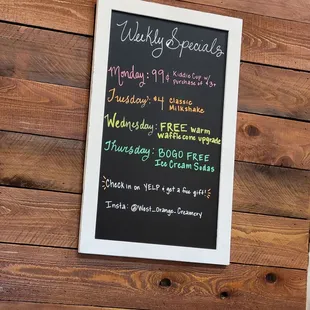 Weekly Specials
Monday: 99¢ Kiddie Cup w/
purchase of $3+
Tuesday: $4 Classic
Milkshake
Wednesday: FREE warm
waffle cone upgrade
Thursday: BOGO FREE
Ice Cream Sodas
Check in on YELP & get a free gift!
Insta: @West_Orange_Creamery